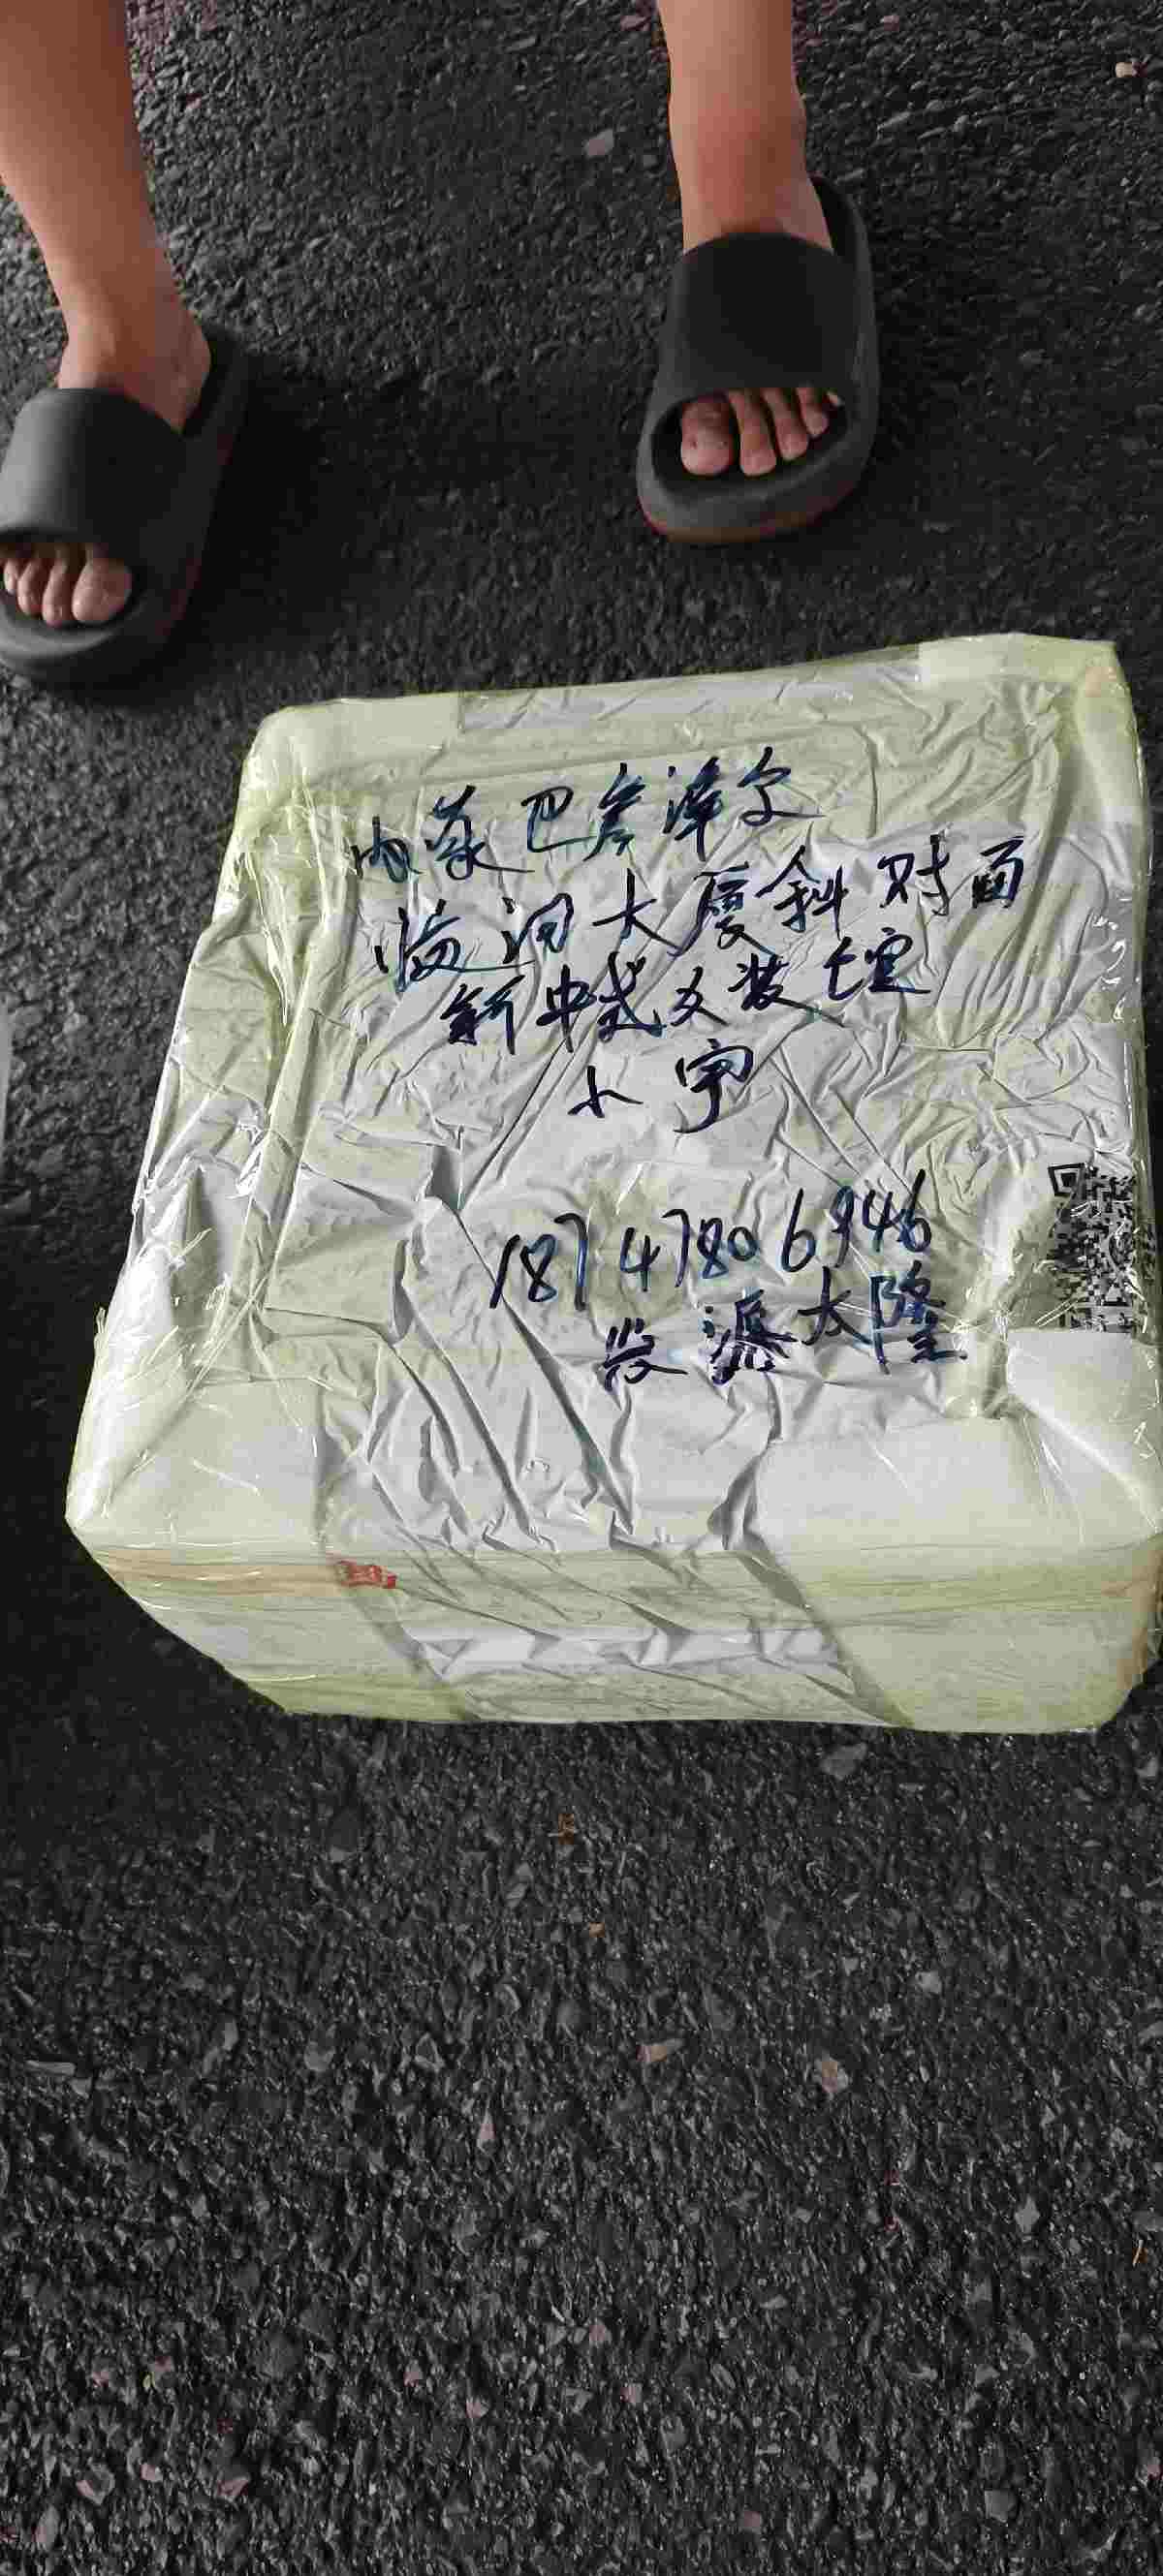 内蒙巴彦淖尔
临河大厦斜对面
新中式女装
小宇
18747806946
发 源大隆